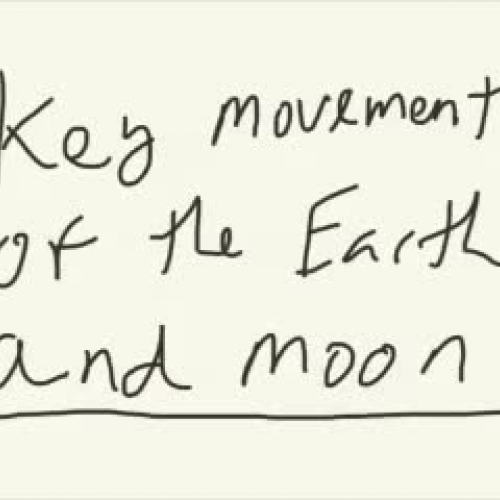 Key movement
of the Earth
and moon